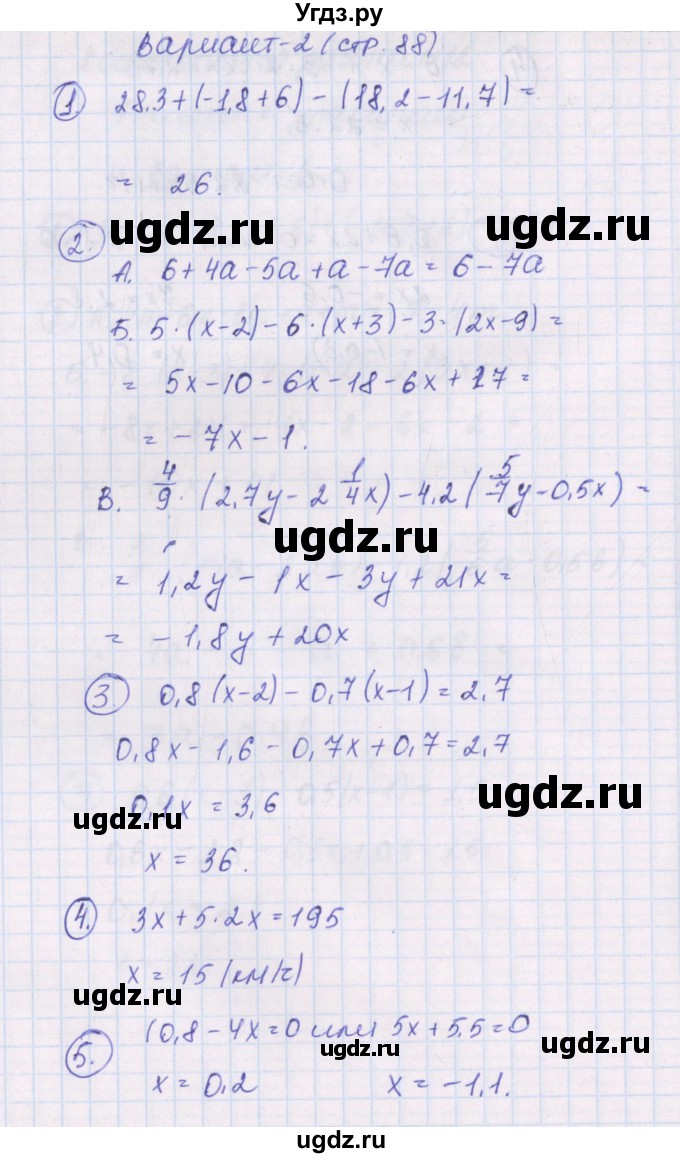 Угдз.ру
Вариант-2 (стр. 88)
1. 28.3+(-1,8+6) - (18,2-11,7) =
= 26.
ugdz.ru
ugdz.ru
2.
А. 6+4a-5a+a-7a = 6-7a
Б. 5·(x-2)-6·(x+3)-3·(2x-9) =
= 5x-10-6x-18-6x+27 =
= -7x-1.
В. 4/9 · (2,7y - 2 1/4x) - 4,2 (5/7y - 0,5x) =
ugdz.ru
= 1,2y - 1x - 3y + 21x =
= -1,8y + 20x
3. 0,8(x-2) - 0,7(x-1) = 2,7
0,8x - 1,6 - 0,7x + 0,7 = 2,7
0,1x = 3,6
ugdz.ru
ugdz.ru
x = 36.
4. 3x+5·2x=195
x = 15 (км/ч)
ugdz.ru
5. (0,8-4x=0 или 5x+5.5=0
ugdz.ru
x = 0,2 x = -1,1.
ugdz.ru
ugdz.ru
ugdz.ru